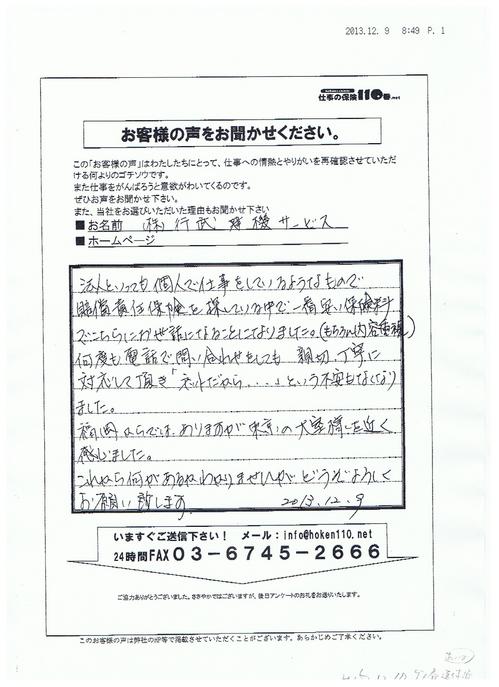 2013.12. 9  8:49 P. 1
仕事の保険110番.net
お客様の声をお聞かせください。
この「お客様の声」はわたしたちにとって、仕事への情熱とやりがいを再確認させていただ
ける何よりのゴチソウです。
また仕事をがんばろうと意欲がわいてくるのです。
ぜひお声をお聞かせ下さい。
また、当社をお選びいただいた理由もお聞かせ下さい
■お名前 (株)行武 機サービス
■ホームページ
法人といっても個人で仕事をしているようなもので
賠償責任保険を探している中で一番安い保険料
でこちらにお世話になることになりました。(もちろん内容重視)
何度も電話で問い合わせをしても 親切、丁寧に
対応して頂き「ネットだから・・・・」という不安もなくなり
ました。
福岡 ではありますが東京の大塚様を近く
感じました。
これから何があるかわかりませんがどうぞよろしく
お願い致します 2013.12.9
いますぐご送信下さい！ メール：info@hoken110.net
24時間FAX 03-6745-2666
ご協力ありがとうございました。ささやかではございますが、後日アンケートのお礼をお送りいたします。
このお客様の声は弊社のHP等で掲載させていただくことがございます。あらかじめご了承ください。